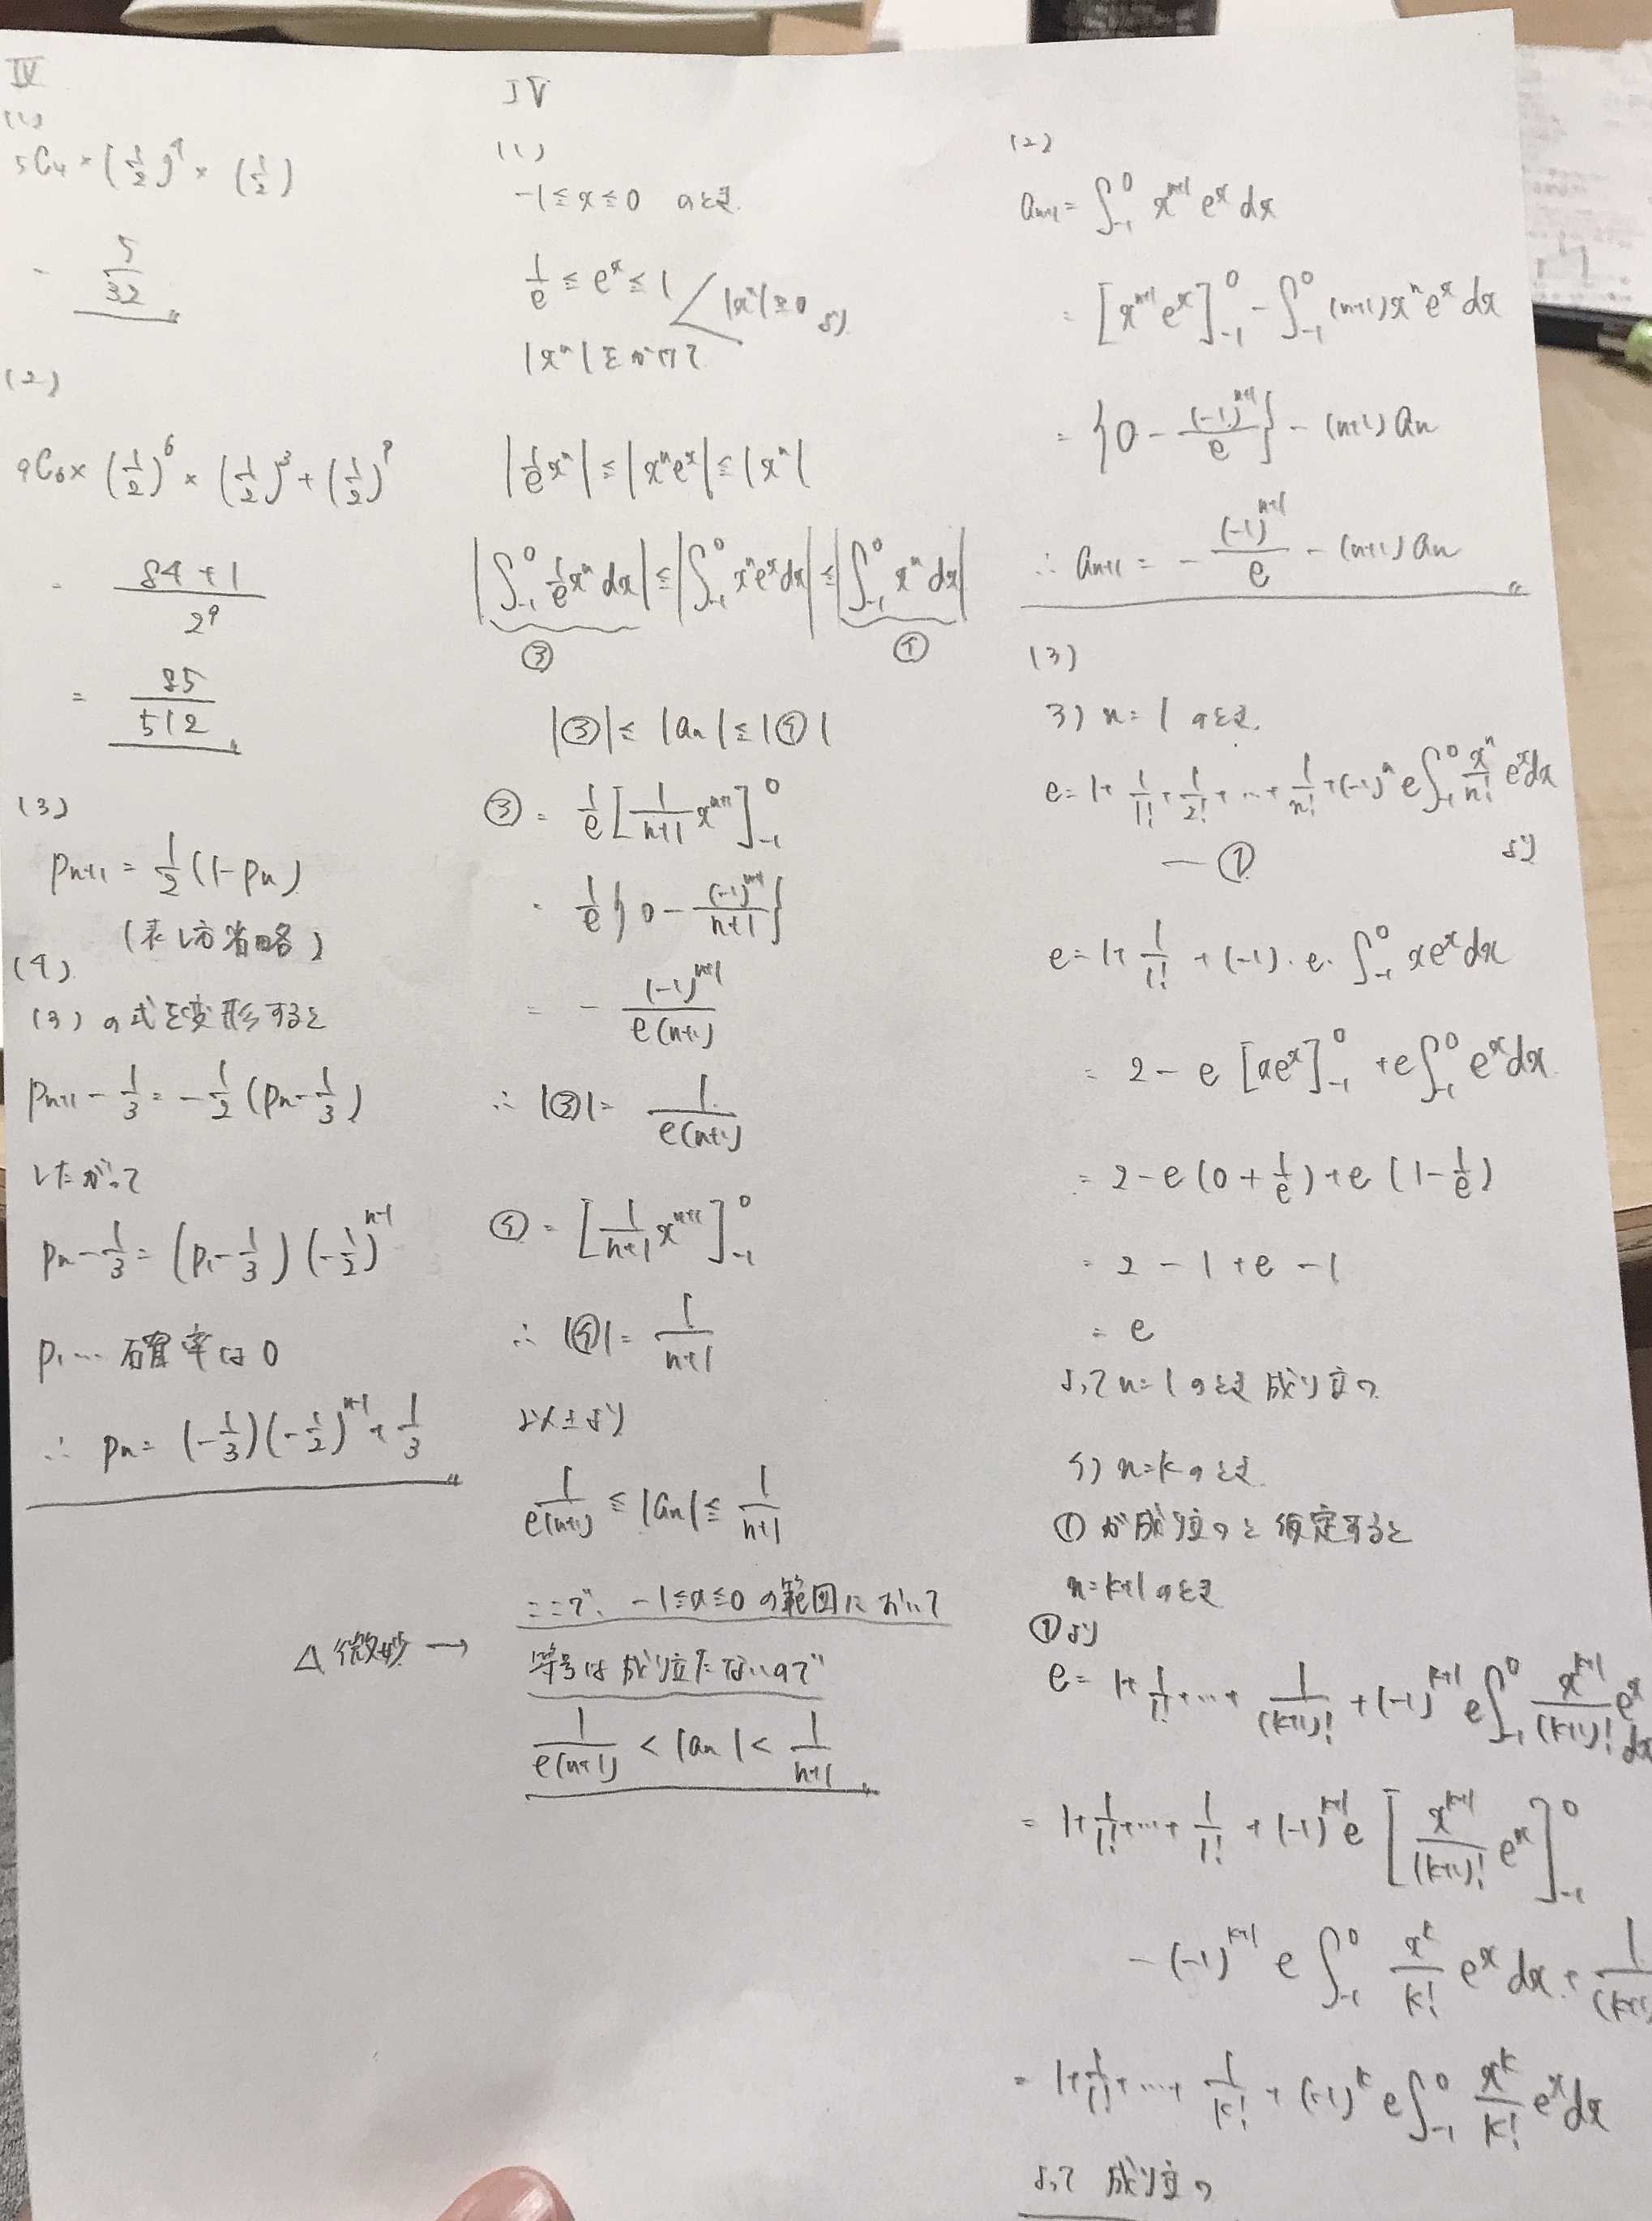 IV
(1)
5C4 × (1/2)^4 × (1/2)
= 5/32
(2)
9C6 × (1/2)^6 × (1/2)^3 + (1/2)^9
= (84+1)/2^9
= 85/512
(3)
Pn+1 = 1/2 (1-Pn)
(表し方省略)
(4)
(3)の式を変形すると
Pn+1 - 1/3 = -1/2 (Pn - 1/3)
したがって
Pn - 1/3 = (P1 - 1/3)(-1/2)^n-1
P1… 確率は0
∴ Pn = (-1/3)(-1/2)^n-1 + 1/3
IV
(1)
-1≦x≦0 のとき
1/e ≦ e^x ≦ 1
|x^n|≧0 より
|x^n|をかけて
|1/e x^n| ≦ |x^n e^x| ≦ |x^n|
|∫_-1^0 1/e x^n dx| ≦ |∫_-1^0 x^n e^x dx| ≦ |∫_-1^0 x^n dx|
③ ④
|③| ≦ |an| ≦ |④|
③ = 1/e [1/(n+1) x^n+1]_-1^0
= 1/e {0 - (-1)^n+1/(n+1)}
= - (-1)^n+1/e(n+1)
∴ |③| = 1/e(n+1)
④ = [1/(n+1) x^n+1]_-1^0
∴ |④| = 1/(n+1)
以上より
1/e(n+1) ≦ |an| ≦ 1/(n+1)
ここで、-1≦x≦0 の範囲において
△微妙→ 等号は成り立たないので
1/e(n+1) < |an| < 1/(n+1)
(2)
an+1 = ∫_-1^0 x^n+1 e^x dx
= [x^n+1 e^x]_-1^0 - ∫_-1^0 (n+1)x^n e^x dx
= {0 - (-1)^n+1/e} - (n+1)an
∴ an+1 = - (-1)^n+1/e - (n+1)an
(3)
3) n=1 のとき
e = 1 + 1/1! + 1/2! + … + 1/n! + (-1)^n e∫_-1^0 x^n/n! e^x dx
—① より
e = 1 + 1/1! + (-1)・e・∫_-1^0 xe^x dx
= 2 - e [xe^x]_-1^0 + e∫_-1^0 e^x dx
= 2 - e(0 + 1/e) + e(1 - 1/e)
= 2 - 1 + e - 1
= e
よって n=1 のとき 成り立つ
n=k のとき
①が成り立つと仮定すると
n=k+1 のとき
①より
e = 1 + 1/1! + … + 1/(k+1)! + (-1)^k+1 e∫_-1^0 x^k+1/(k+1)! e^x dx
= 1 + 1/1! + … + 1/1! + (-1)^k+1 e [x^k+1/(k+1)! e^x]_-1^0
- (-1)^k+1 e∫_-1^0 x^k/k! e^x dx + 1/(k+1)
= 1 + 1/1! + … + 1/k! + (-1)^k e∫_-1^0 x^k/k! e^x dx
よって 成り立つ